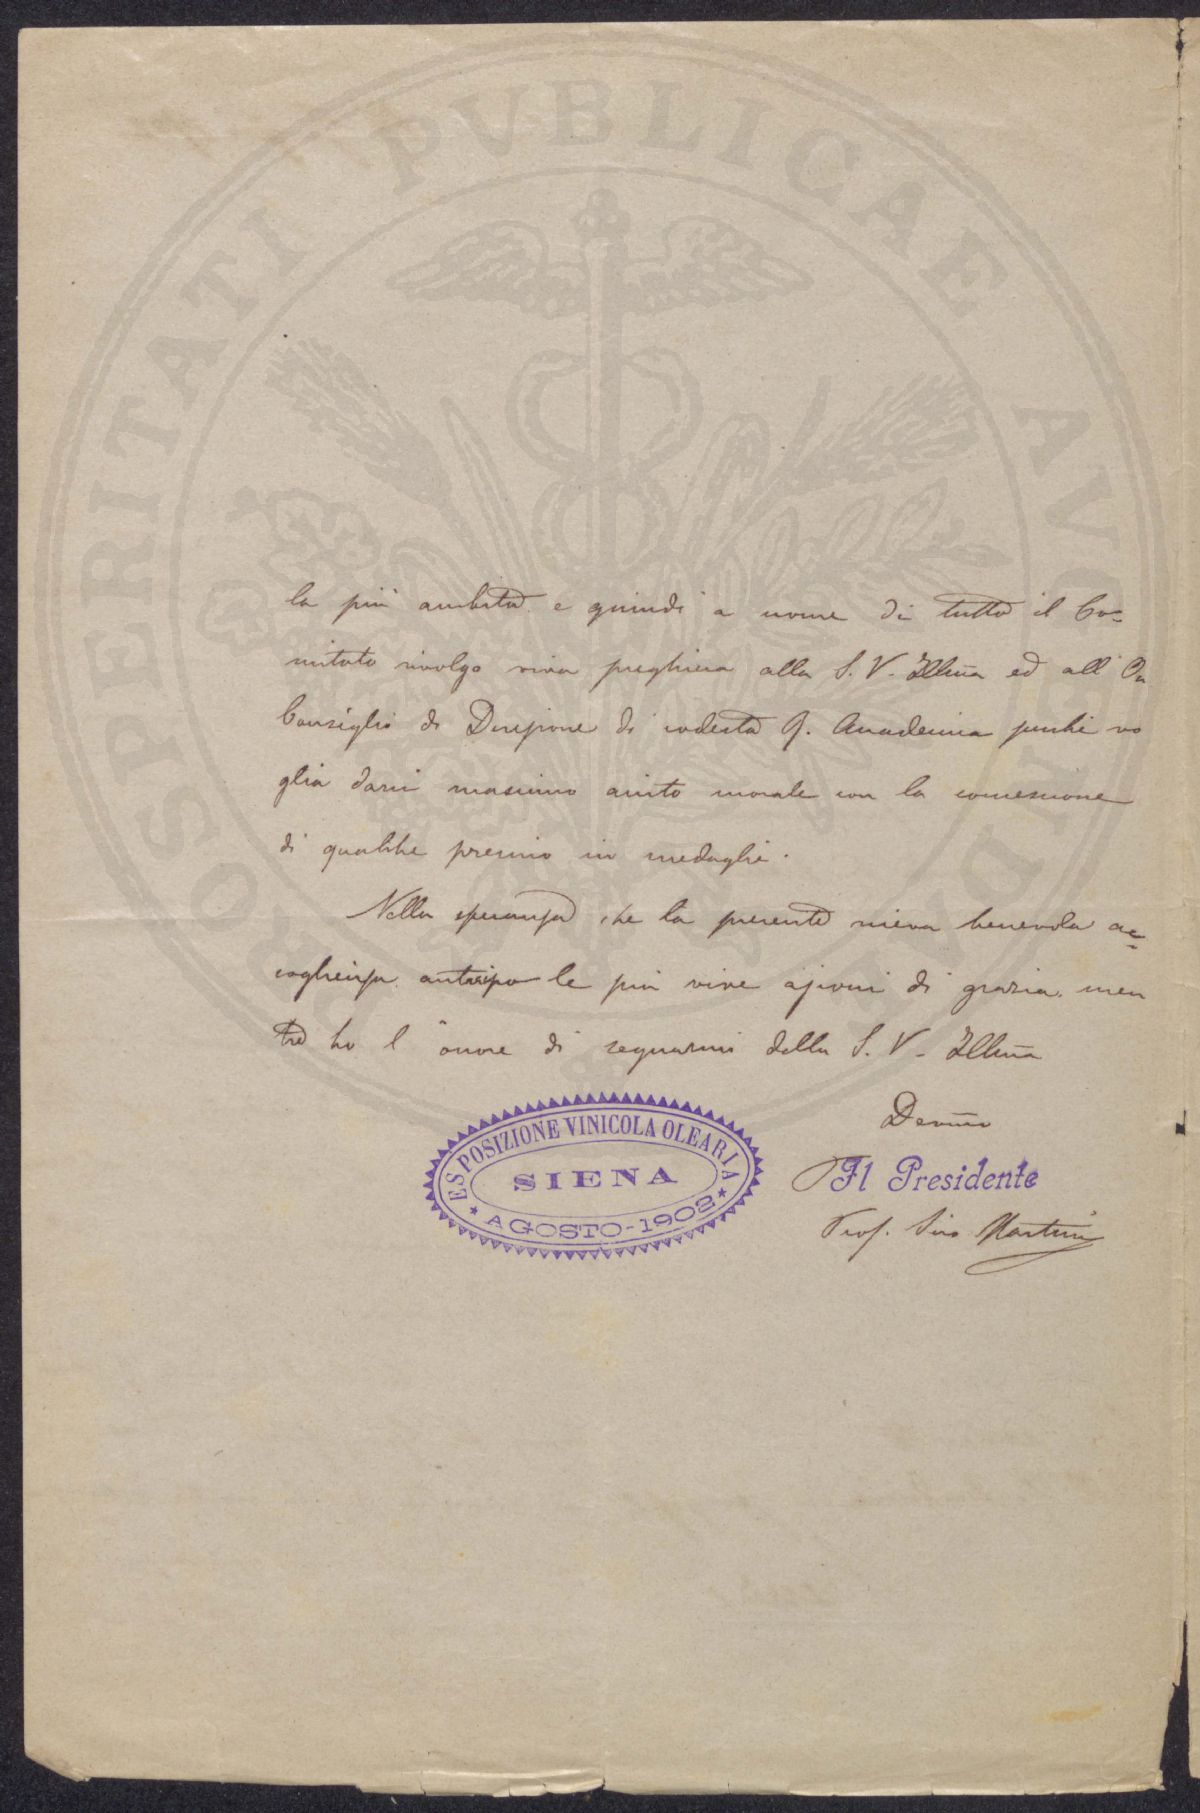 PROSPERITATI PUBLICAE AUGENDAE
la più ambita e quindi a nome di tutto il Co=
mitato rivolgo viva preghiera alla S. V. Illma ed all' On
Consiglio di Direzione di codesta R. Accademia perchè vo
glia darci massimo aiuto morale con la concessione
di qualche premio in medaglie.
Nella speranza che la presente riceva benevola ac=
coglienza, anticipo le più vive azioni di grazia, men
tre ho l'onore di segnarmi della S. V. Illma
Devmo
ESPOSIZIONE VINICOLA OLEARIA
SIENA
* AGOSTO-1902 *
Il Presidente
Prof. Martini